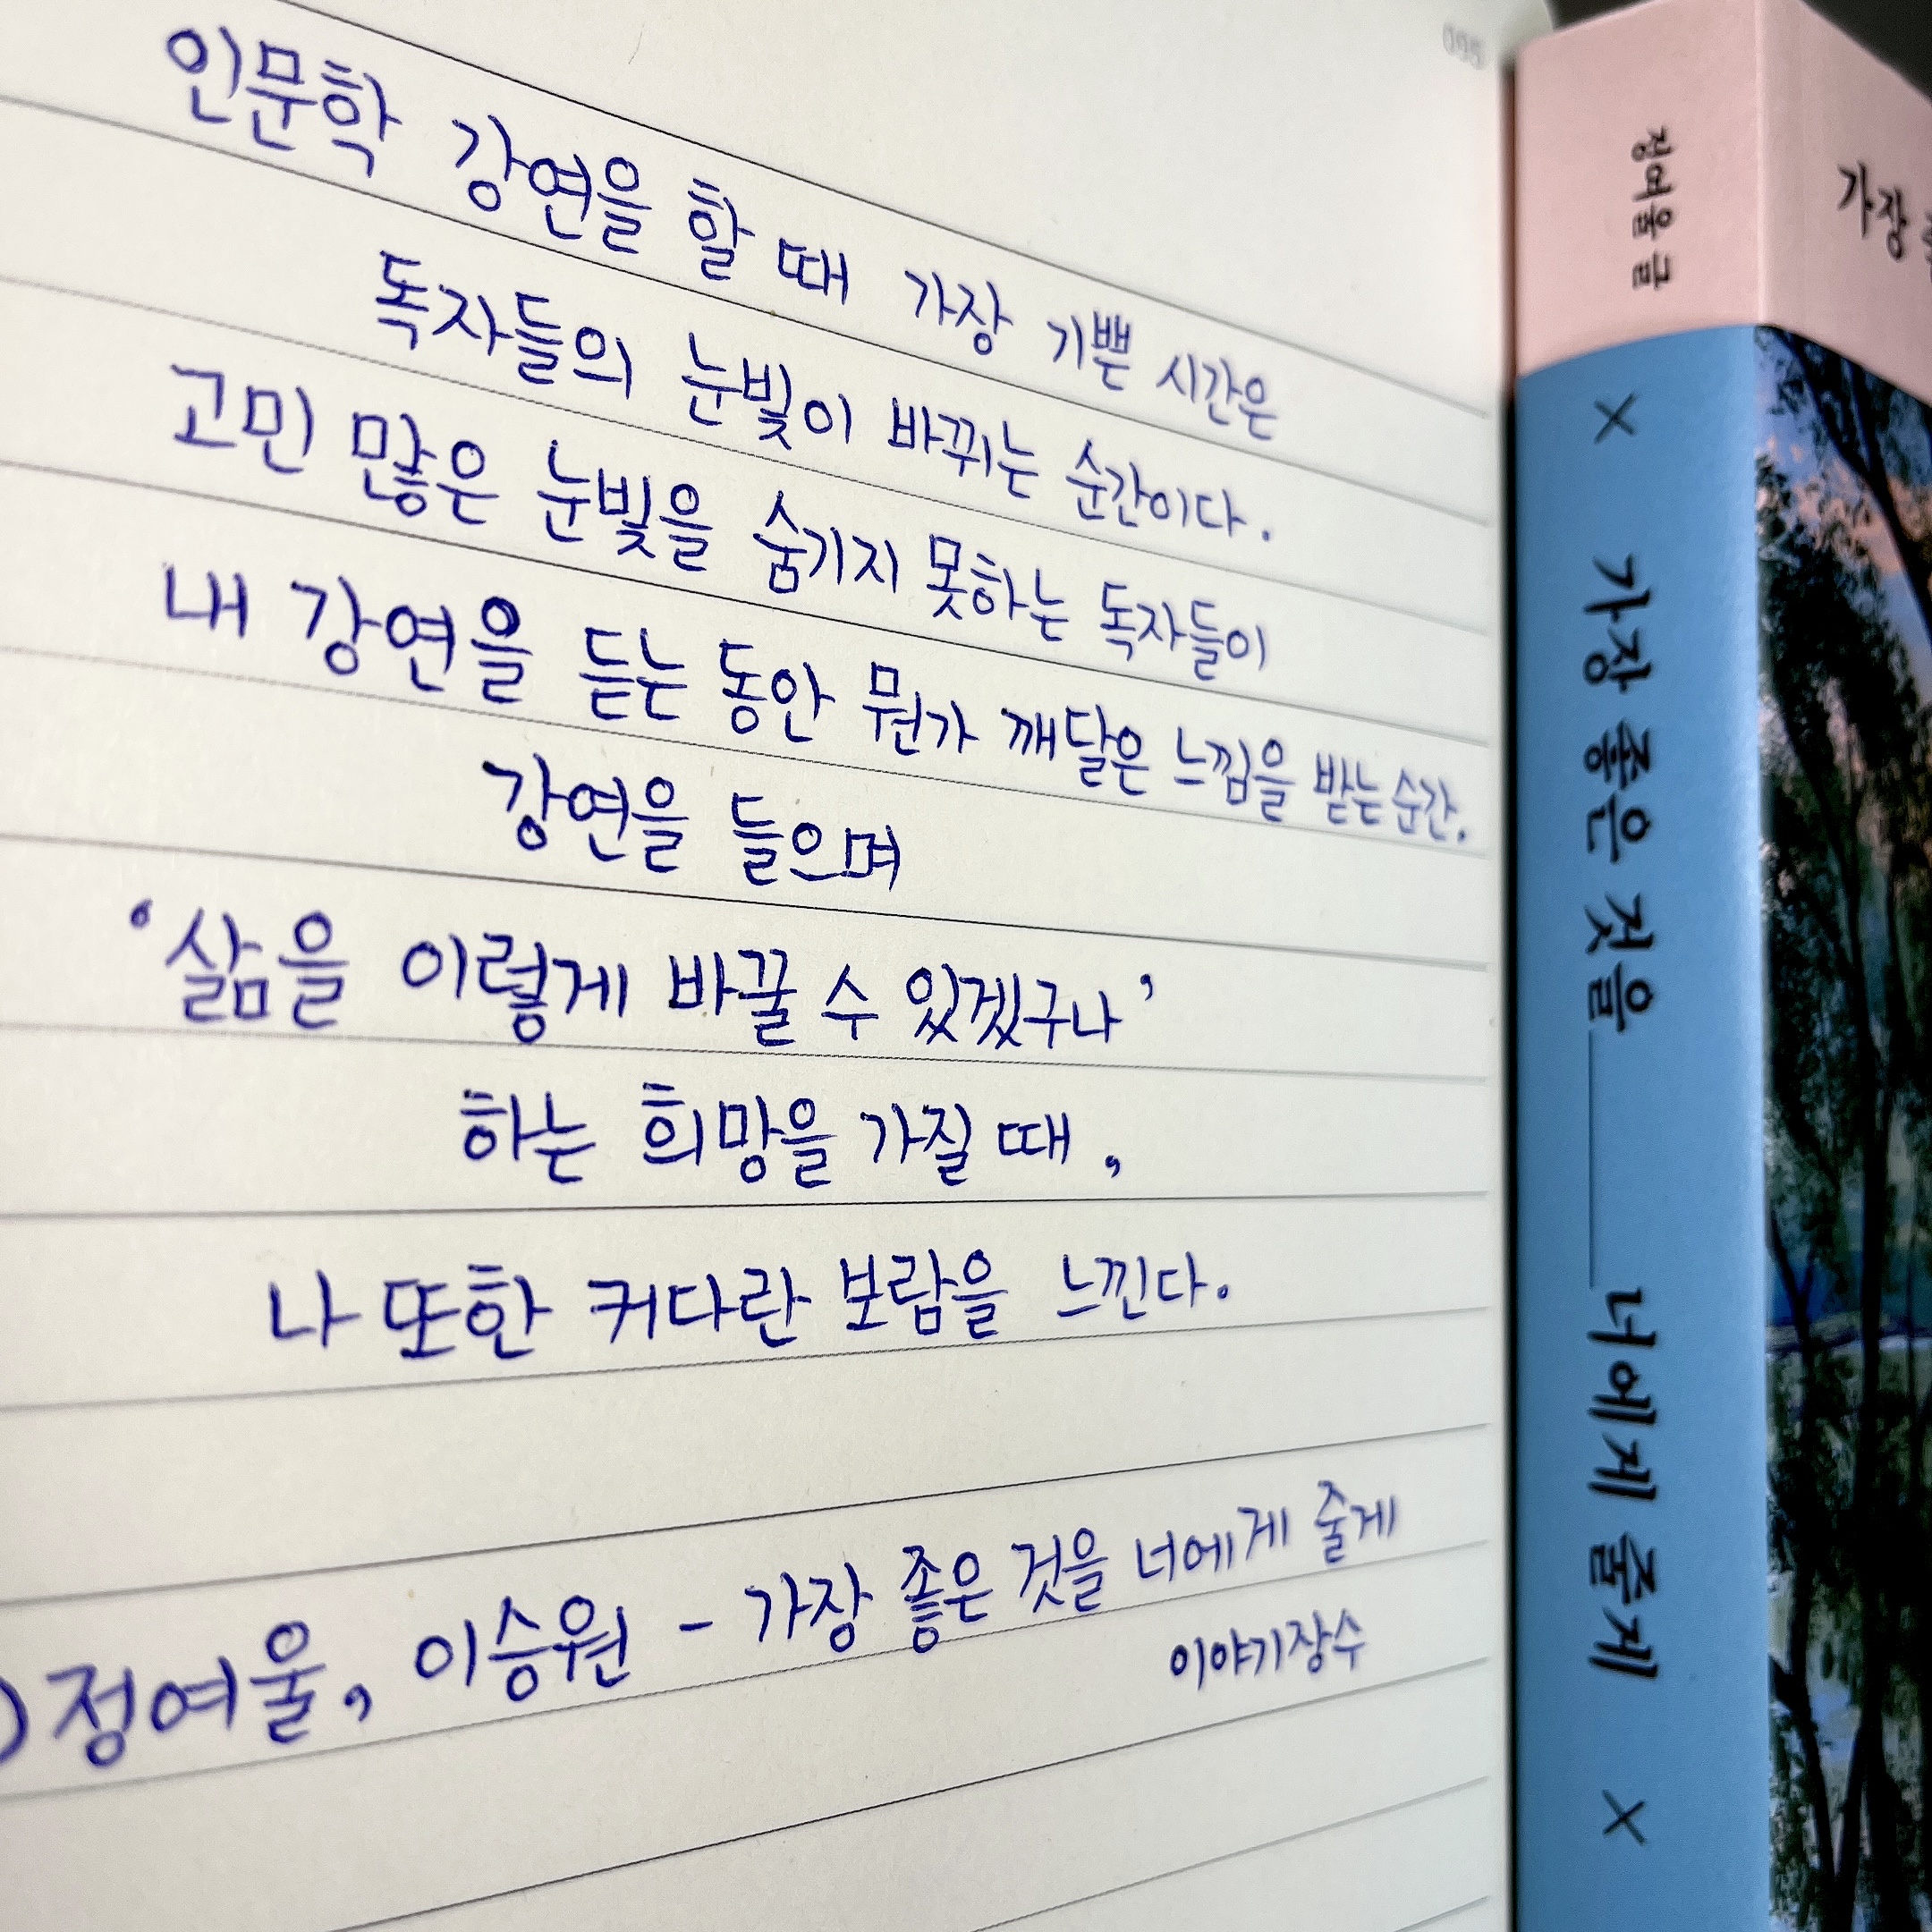 인문학 강연을 할 때 가장 기쁜 시간은
독자들의 눈빛이 바뀌는 순간이다.
고민 많은 눈빛을 숨기지 못하는 독자들이
내 강연을 듣는 동안 뭔가 깨달은 느낌을 받는 순간.
강연을 들으며
‘삶을 이렇게 바꿀 수 있겠구나’
하는 희망을 가질 때,
나 또한 커다란 보람을 느낀다.
)정여울, 이승원 - 가장 좋은 것을 너에게 줄게
이야기장수
정여울 글
× 가장 좋은 것을___너에게 줄게 ×
가장